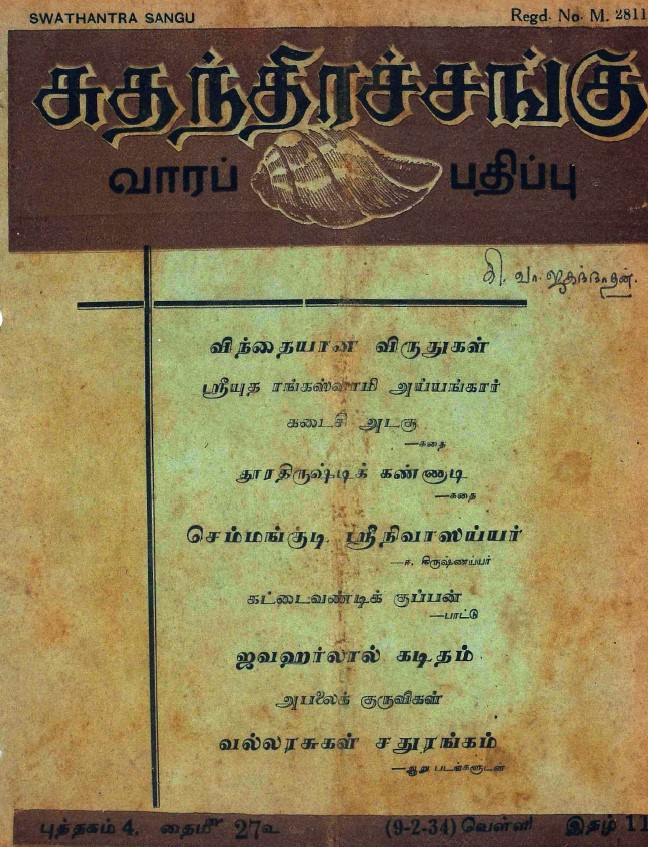 SWATHANTRA SANGU
Regd. No. M. 2811
சுதந்திரச்சங்கு
வாரப் பதிப்பு
கி. வா. ஜகந்நாதன்.
விந்தையான விருதுகள்
ஸ்ரீயுத ரங்கஸ்வாமி அய்யங்கார்
கடைசி அடகு
—கதை
தூரதிருஷ்டிக் கண்ணாடி
—கதை
செம்மங்குடி ஸ்ரீநிவாஸய்யர்
—ஈ. கிருஷ்ணய்யர்
கட்டைவண்டிக் குப்பன்
—பாட்டு
ஜவஹர்லால் கடிதம்
அபலைக் குருவிகள்
வல்லரசுகள் சதுரங்கம்
—ஆறு படங்களுடன்
புத்தகம் 4. தைமீ 27உ (9-2-34) வெள்ளி இதழ் 11